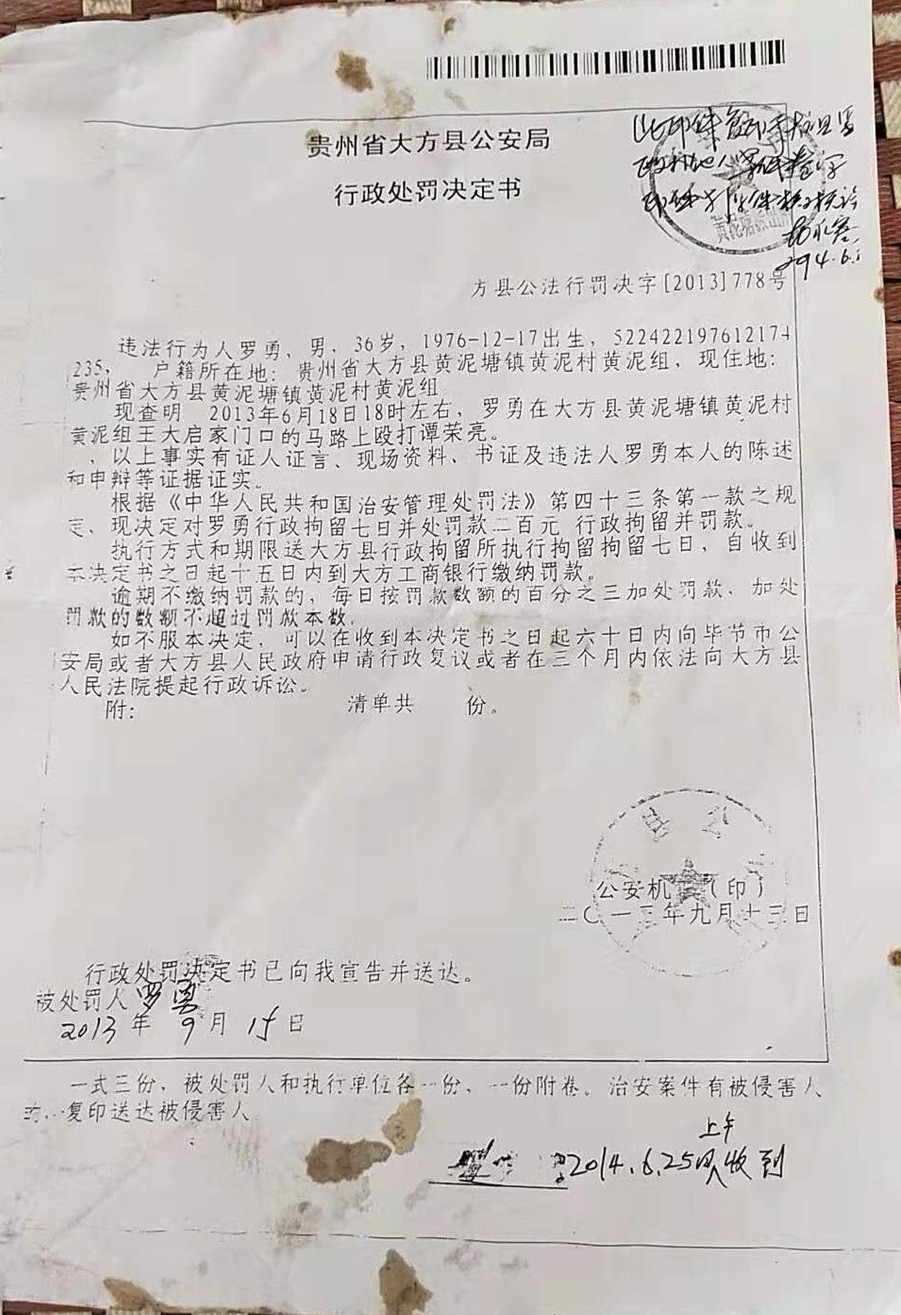 贵州省大方县公安局
行政处罚决定书
方县公法行罚决字[2013]778号
违法行为人罗勇，男，36岁，1976-12-17出生，522422197612174
235， 户籍所在地：贵州省大方县黄泥塘镇黄泥村黄泥组，现住地：
贵州省大方县黄泥塘镇黄泥村黄泥组
现查明 2013年6月18日18时左右，罗勇在大方县黄泥塘镇黄泥村
黄泥组王大启家门口的马路上殴打谭荣亮。
以上事实有证人证言、现场资料、书证及违法人罗勇本人的陈述
和申辩等证据证实。
根据《中华人民共和国治安管理处罚法》第四十三条第一款之规
定、现决定对罗勇行政拘留七日并处罚款二百元 行政拘留并罚款。
执行方式和期限送大方县行政拘留所执行拘留拘留七日，自收到
本决定书之日起十五日内到大方工商银行缴纳罚款。
逾期不缴纳罚款的，每日按罚款数额的百分之三加处罚款，加处
罚款的数额不超过罚款本数。
如不服本决定，可以在收到本决定书之日起六十日内向毕节市公
安局或者大方县人民政府申请行政复议或者在三个月内依法向大方县
人民法院提起行政诉讼。
附： 清单共 份。
公安机 （印）
二〇一三年九月十三日
行政处罚决定书已向我宣告并送达。
被处罚人 罗勇
2013年9月15日
一式三份，被处罚人和执行单位各一份，一份附卷。治安案件有被侵害人
复印送达被侵害人
上午
2014.6.25 收到